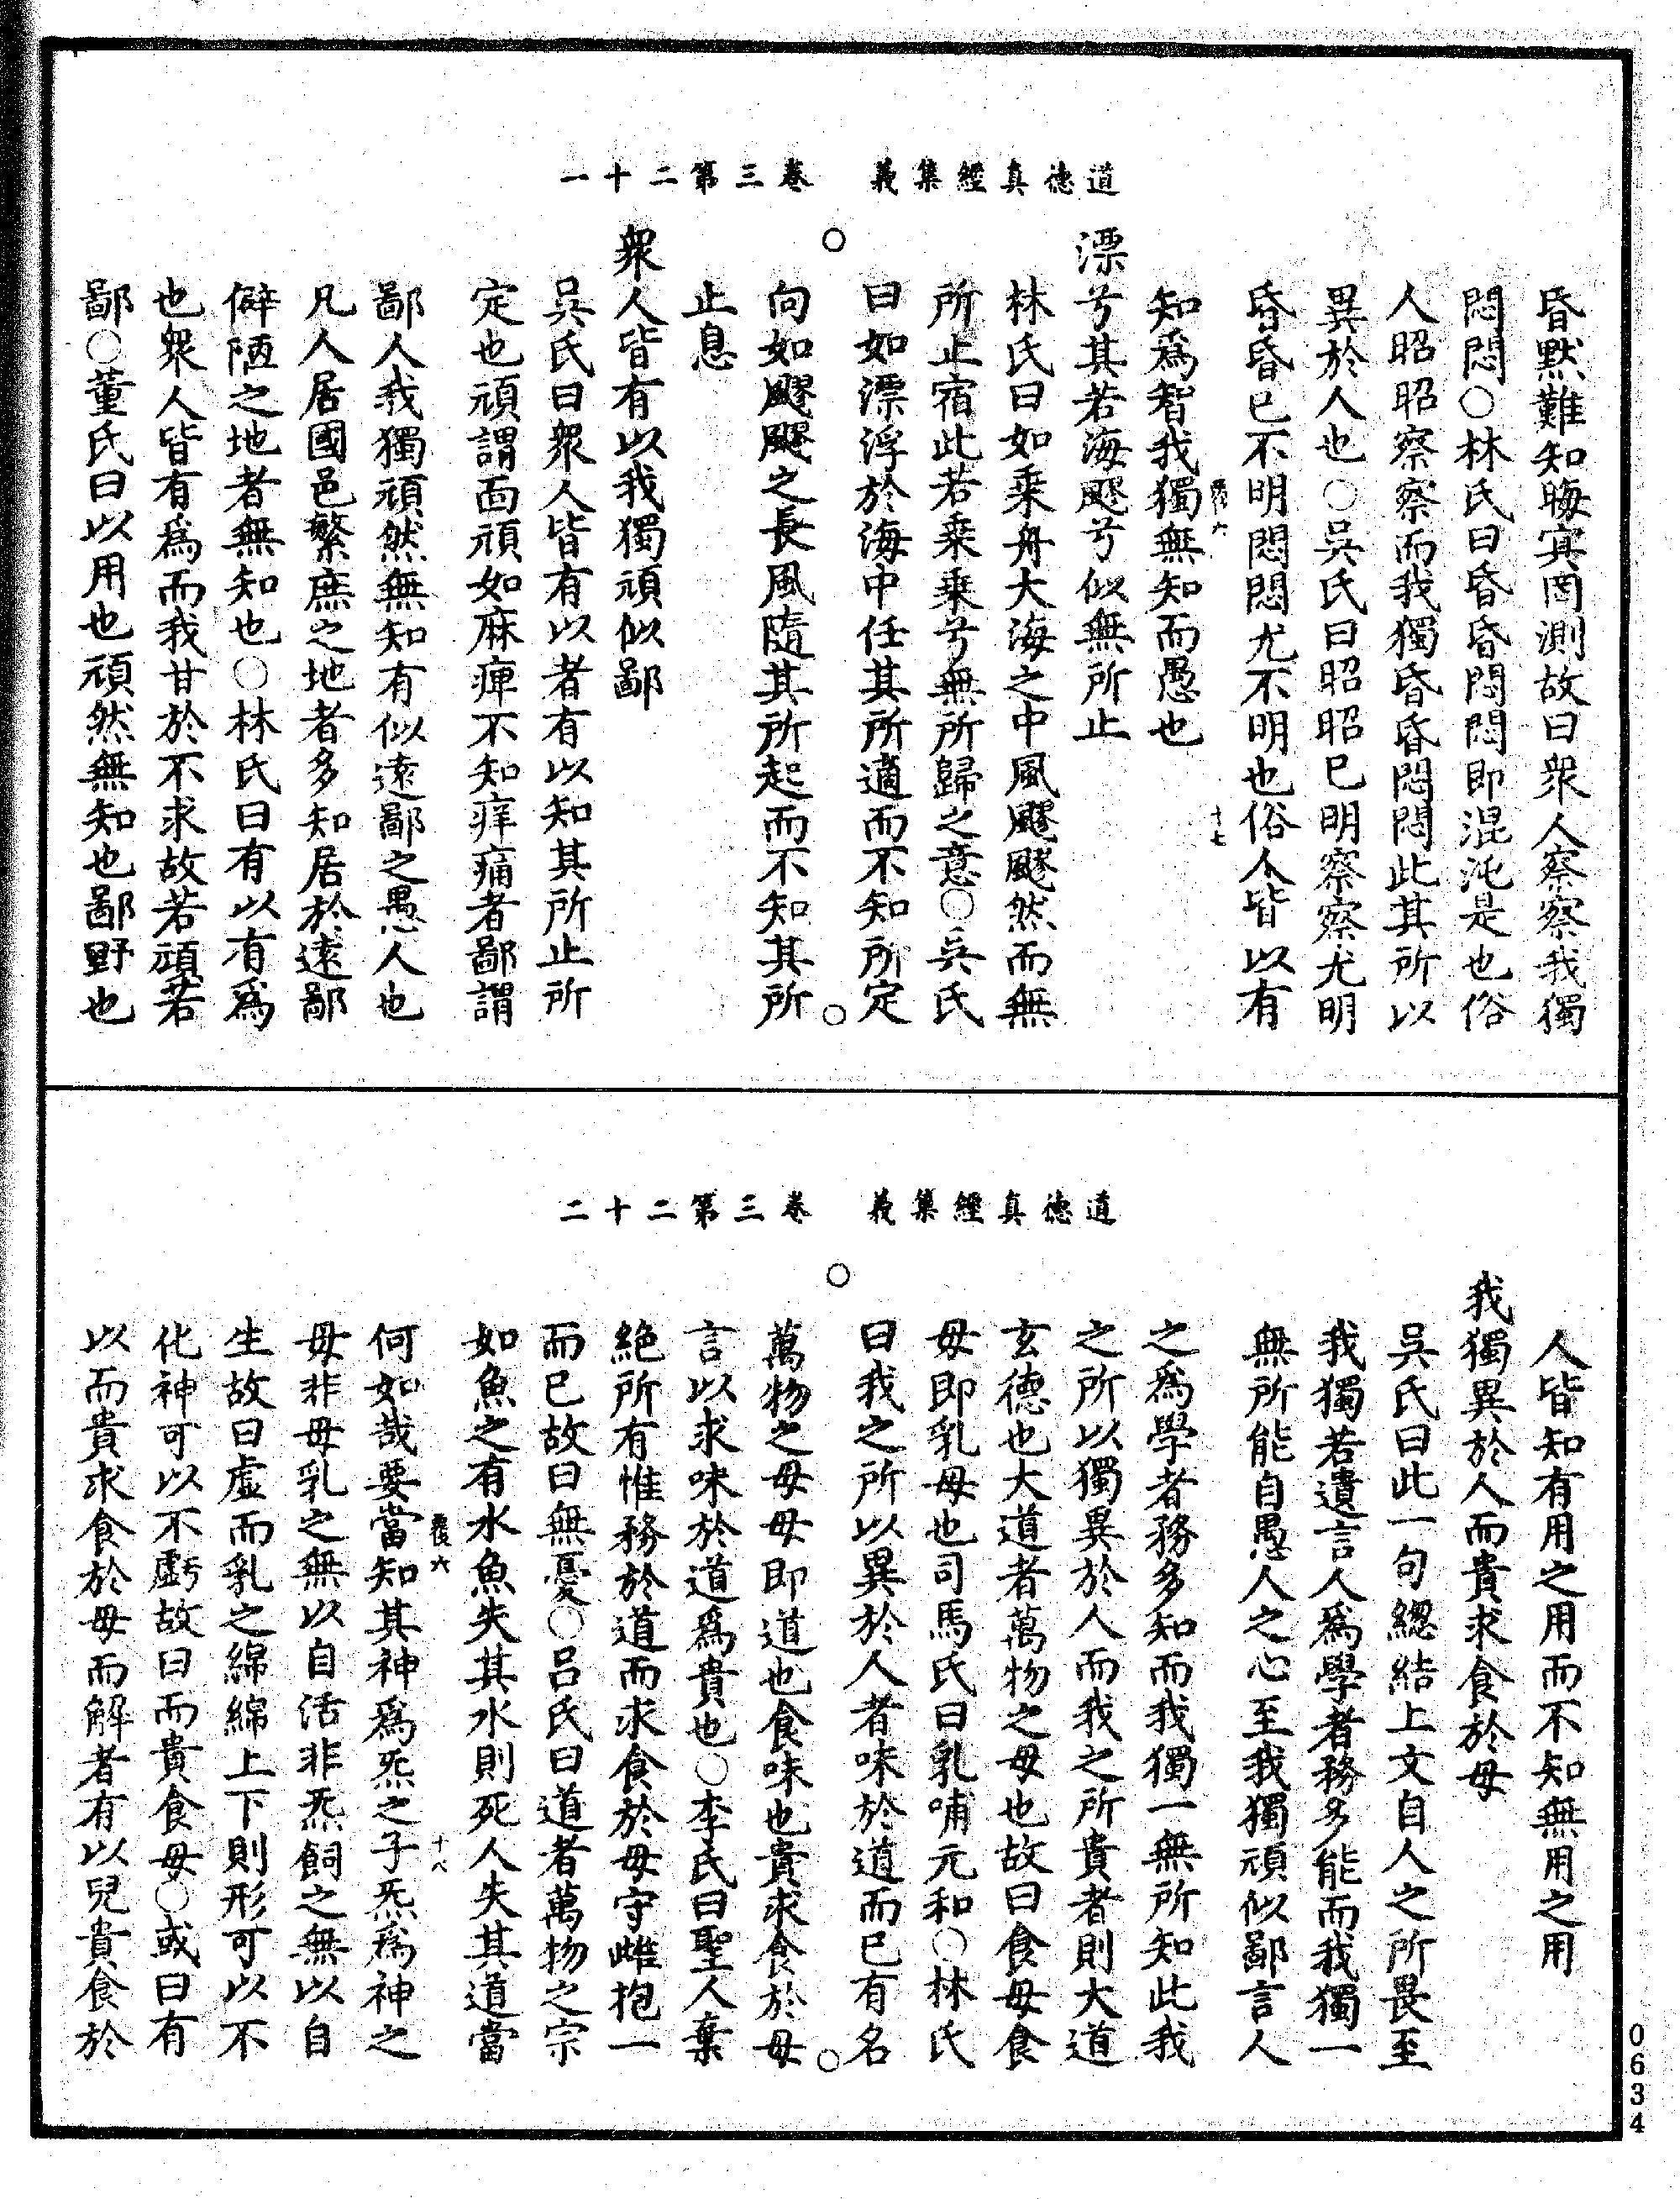 道德真經集義　卷三第二十一
昏默難知晦冥罔測故曰衆人察察我獨
悶悶○林氏曰昏昏悶悶即混沌是也俗
人昭昭察察而我獨昏昏悶悶此其所以
異於人也○吳氏曰昭昭已明察察尤明
昏昏已不明悶悶尤不明也俗人皆以有
知爲智我獨無知而愚也
漂兮其若海飂兮似無所止
林氏曰如乘舟大海之中風飂飂然而無
所止宿此若乘乘兮無所歸之意○吳氏
曰如漂浮於海中任其所適而不知所定
向如飂飂之長風隨其所起而不知其所
止息
衆人皆有以我獨頑似鄙
吳氏曰衆人皆有以者有以知其所止所
定也頑謂面頑如麻痺不知痒痛者鄙謂
鄙人我獨頑然無知有似遠鄙之愚人也
凡人居國邑繁庶之地者多知居於遠鄙
僻陋之地者無知也○林氏曰有以有爲
也衆人皆有爲而我甘於不求故若頑若
鄙○董氏曰以用也頑然無知也鄙野也
十七
道德真經集義　卷三第二十二
人皆知有用之用而不知無用之用
我獨異於人而貴求食於母
吳氏曰此一句總結上文自人之所畏至
我獨若遺言人爲學者務多能而我獨一
無所能自愚人之心至我獨頑似鄙言人
之爲學者務多知而我獨一無所知此我
之所以獨異於人而我之所貴者則大道
玄德也大道者萬物之母也故曰食母食
母即乳母也司馬氏曰乳哺元和○林氏
曰我之所以異於人者味於道而已有名
萬物之母母即道也食味也貴求食於母
言以求味於道爲貴也○李氏曰聖人棄
絕所有惟務於道而求食於母守雌抱一
而已故曰無憂○呂氏曰道者萬物之宗
如魚之有水魚失其水則死人失其道當
何如哉要當知其神爲炁之子炁爲神之
母非母乳之無以自活非炁飼之無以自
生故曰虛而乳之綿綿上下則形可以不
化神可以不虧故曰而貴食母○或曰有
以而貴求食於母而解者有以兒貴食於
十八
0634